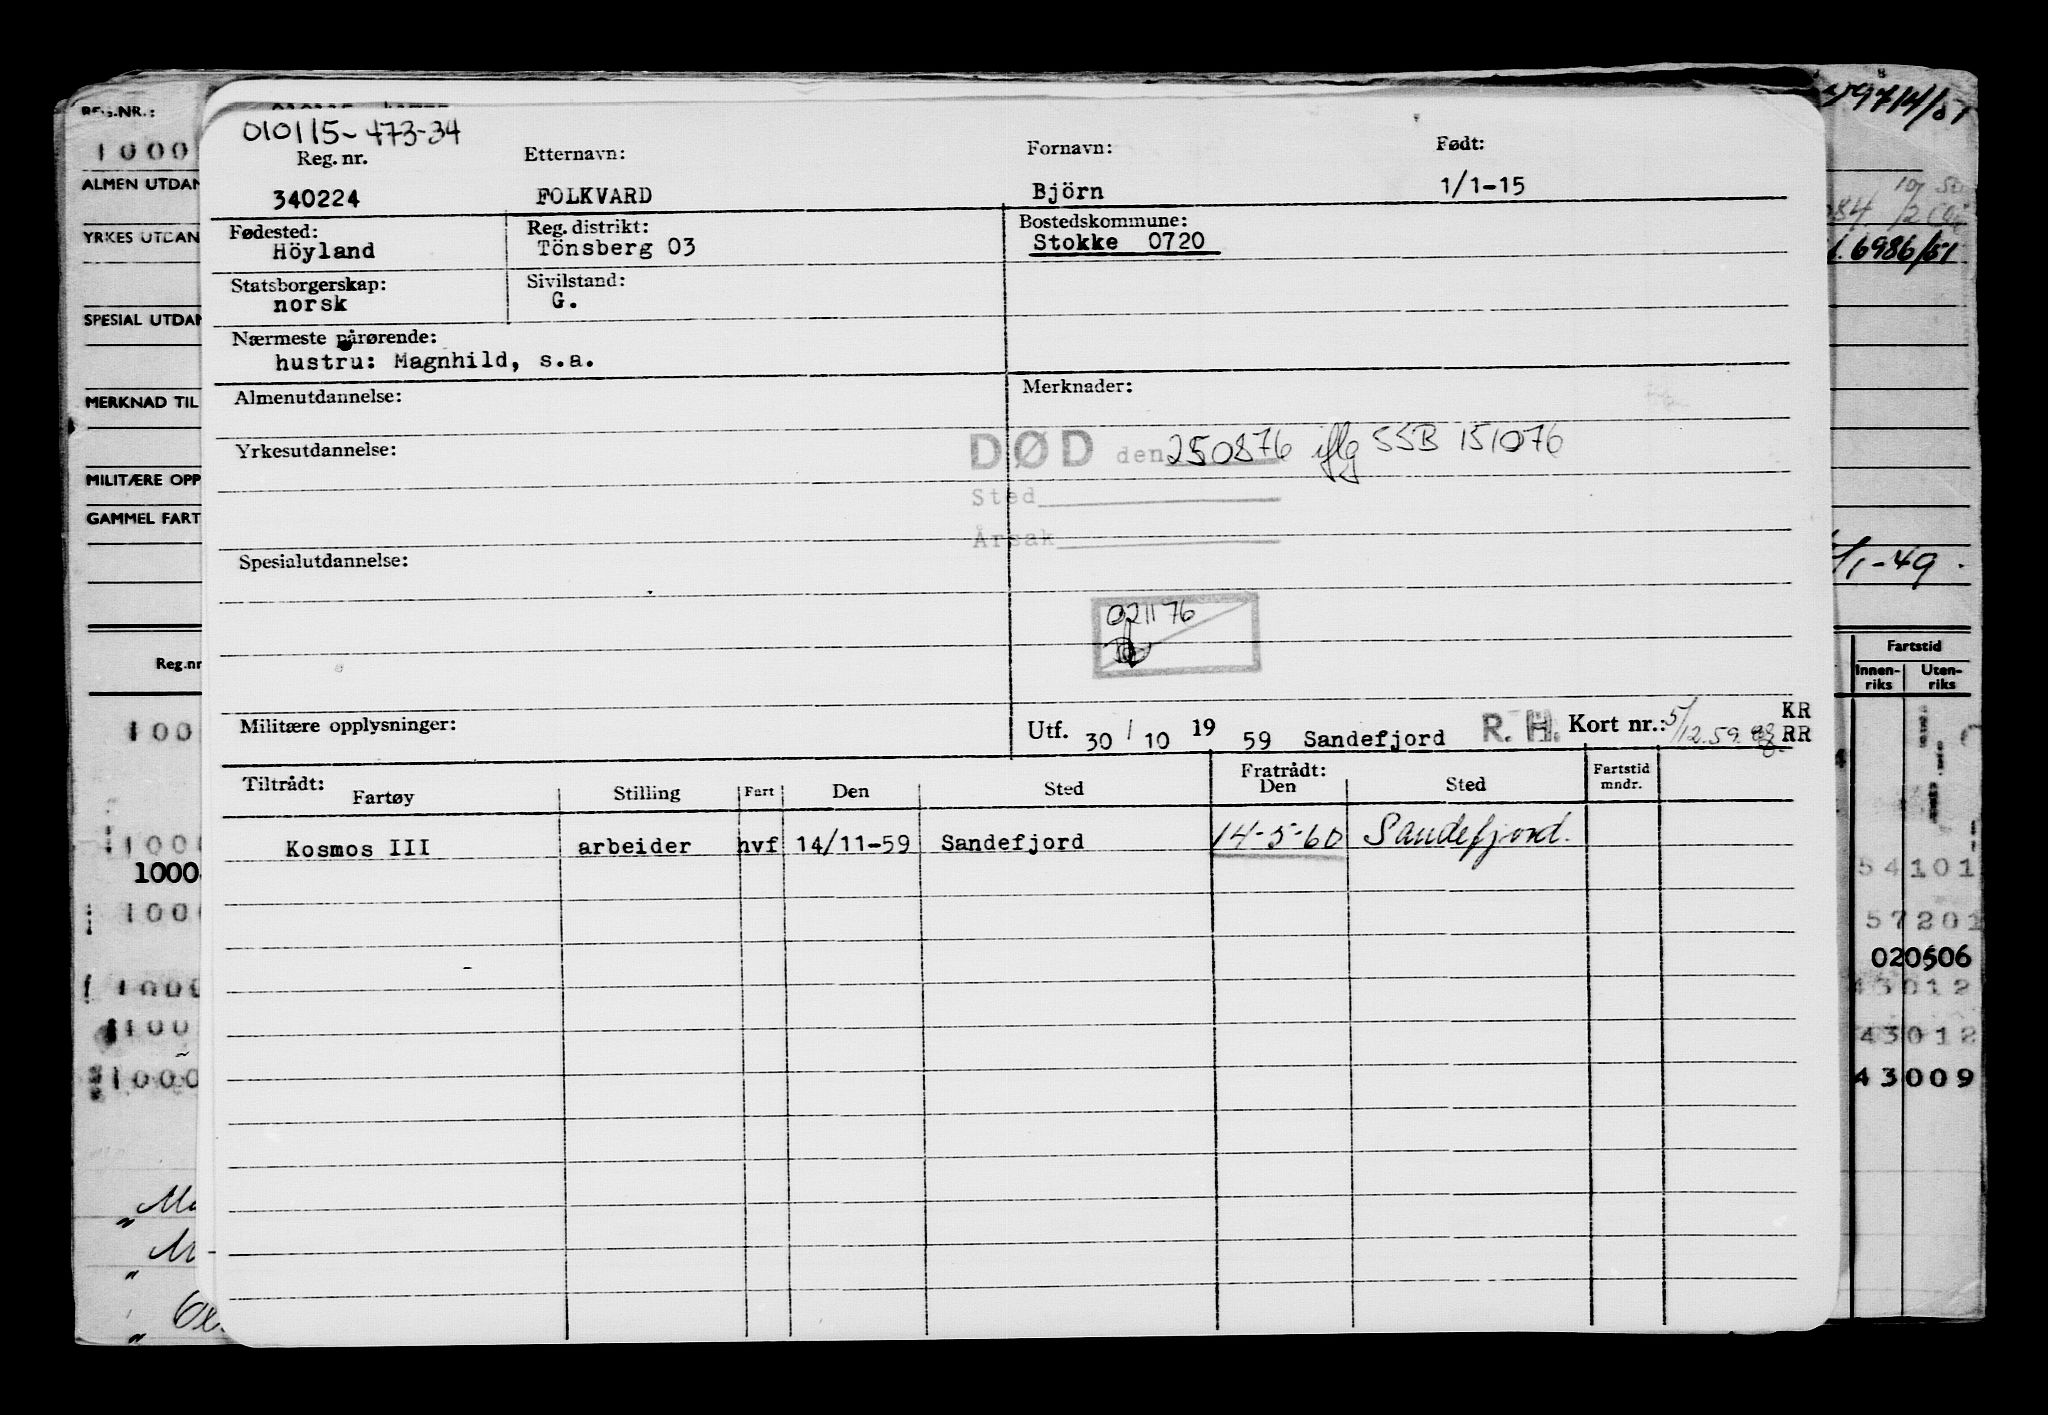 010115-473-34
Reg. nr. Etternavn: Fornavn: Født:
340224 FOLKVARD Björn 1/1-15
Fødested: Reg. distrikt: Bostedskommune:
Höyland Tönsberg 03 Stokke 0720
Statsborgerskap: Sivilstand:
norsk G.
Nærmeste pårørende:
hustru: Magnhild, s.a.
Almenutdannelse: Merknader:
Yrkesutdannelse: DØD den 250876 iflg SSB 151076
Sted
Årsak
Spesialutdannelse:
021176
Militære opplysninger: Utf. 30 / 10 19 59 Sandefjord R. H. Kort nr.: 5/12.59. KR
RR
Tiltrådt: Fratrådt:
Fartøy Stilling Fart Den Sted Den Sted Fartstid mndr.
Kosmos III arbeider hvf 14/11-59 Sandefjord 14-5-60 Sandefjord.
REG.NR.:
1000
ALMEN UTDAN
YRKES UTDAN
SPESIAL UTDAN
MERKNAD TIL
MILITÆRE OPP
GAMMEL FART
Reg.nr
100
1000
1000
100
1000
100
1000
9714/51
6986/51
/1-49.
Fartstid
Innen-riks Uten-riks
54101
57201
020506
43012
43012
43009